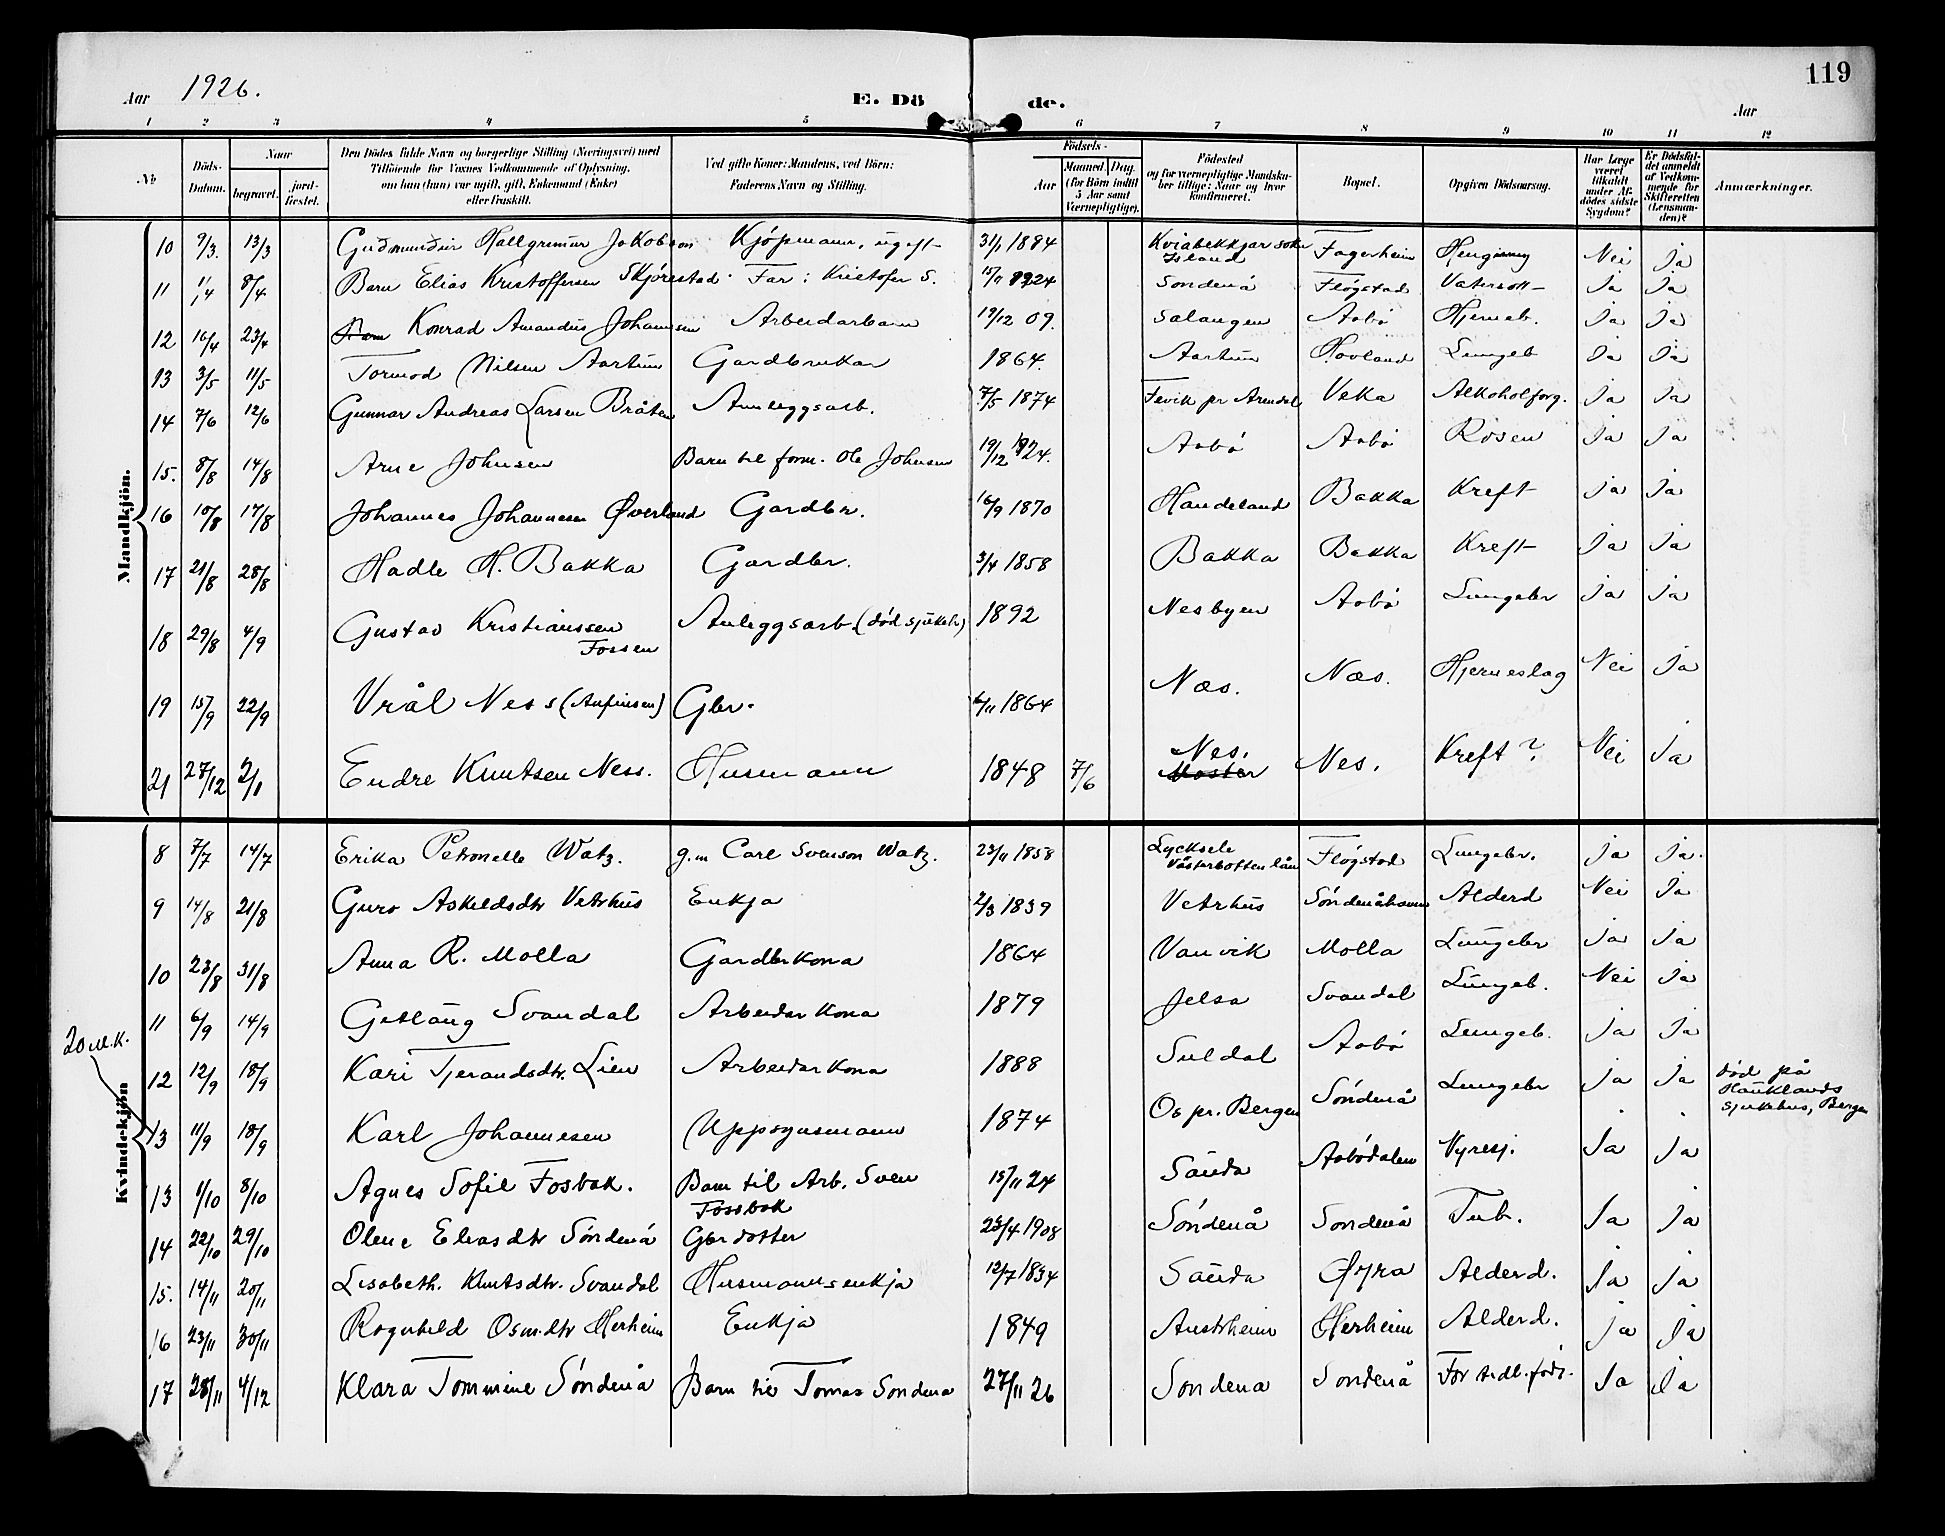 119
Aar 1926.
E. Dö de.
Aar
1 2 3 4 5 6 7 8 9 10 11 12
No
Döds-Datum.
Naar
begravet.
jord-fæstet.
Den Dödes fulde Navn og borgerlige Stilling (Næringsvei) med
Tilföiende for Voxnes Vedkommende af Oplysning,
om han (hun) var ugift, gift, Enkemand (Enke)
eller fraskilt.
Ved gifte Koner: Mandens, ved Börn:
Faderens Navn og Stilling.
Födsels-
Aar
Maaned. Dag.
(for Börn indtil 5 Aar samt Værnepligtige).
Födested
og for værnepligtige Mandska-
ber tillige: Naar og hvor
konfirmeret.
Bopæl.
Opgiven Dödsaarsag.
Har Læge været tilkaldt under Af-dödes sidste Sygdom?
Er Dödsfal-det anmeldt af Vedkom-mende for Skifteretten (Lensman-den)?
Anmærkninger.
Mandkjön.
10 9/3. 13/3 Gudmundur Hallgrimur Jakobson Kjöpmann, ugift 31/1 1884 Kviabekkjar sokn Island Fagerheim Hengning Nei Ja
11 1/4 8/4 Barn Elias Kristoffersen Skjørestad Far: Kristofer S. 15/11 1924 Søndenå Fløgstad Vatersott Ja Ja
12 16/4 23/4 Barn Konrad Amandus Johansen Arbeidarbarn 19/12 09. Salangen Aabø Hjerneb. Ja Ja
13 3/5 11/5 Tormod Nilsen Aartun Gardbrukar 1864. Aartun Hovland Lungeb Ja Ja
14 7/6 12/6 Gunnar Andreas Larsen Bråten Anleggsarb. 7/5 1874 Fevik pr Arendal Veka Alkoholforg. Ja Ja
15. 8/8 14/8 Arne Johnsen Barn til form. Ole Johnsen 19/12 1924. Aabø Aabø Rosen Ja Ja
16 10/8 17/8 Johannes Johannesen Øverland Gardbr. 16/9 1870 Handeland Bakka Kreft Ja Ja
17 21/8 28/8 Hadle H. Bakka Gardbr. 3/4 1858 Bakka Bakka Kreft Ja Ja
18 29/8 4/9 Gustav Kristianssen Fossen Anleggsarb. (død sjukeh) 1892 Nesbyen Aabø Lungebr Ja Ja
19 15/9 22/9 Vrål Ness (Anfinsen) Gbr. 6/11 1864 Næs. Næs. Hjerneslag Nei Ja
21 27/12 2/1 Endre Knutsen Ness. Husmann 1848 7/6 Nes. Moster Nes. Kreft? Nei Ja
Kvindekjön
8 7/7 14/7 Erika Petronelle Watz. g.m Carl Svenson Watz. 23/11 1858 Lycksele Västerbotten län Fløgstad Lungebr. Ja Ja.
9 14/8 21/8 Guro Askeldsdtr Vetrhus Enkja 2/3 1839 Vetrhus Søndenåhavn Alderd Nei Ja
10 23/8 31/8 Anna R. Molla Gardbrkona 1864 Vanvik Molla Lungebr Ja Ja
11 6/9 14/9 Getlaug Svandal Arbeidarkona 1879 Jelsa Svandal Lungeb. Nei Ja
20 m.k.
12 12/9 18/9 Kari Tjerandsdtr. Lien Arbeidarkona 1888 Suldal Aabø Lungeb. Ja Ja
13 11/9 18/9 Karl Johannesen Uppsynsmann 1874 Os pr. Bergen Søndenå Lungebr Ja Ja død på Hauklands sjukehus, Bergen
13 1/10 8/10 Agnes Sofie Fosbak. Barn til Arb. Sven Fossbak 15/11 24 Sauda Aabødalen Nyresj. Ja Ja
14 22/10 29/10 Olene Eliasdtr Søndenå Gbrdotter 23/4 1908 Søndenå Søndenå Tub. Ja Ja
15. 14/11 20/11 Lisabeth. Knutsdtr. Svandal Husmannsenkja 12/7 1834 Sauda Øyra Alderd. Ja Ja
16 23/11 30/11 Rognhild Osm.dtr Herheim Enkja 1849 Austrheim Herheim Alderd. Ja Ja
17 28/11 4/12 Klara Tommine Søndenå Barn til Tomas Søndenå 27/11 26 Søndenå Søndenå For tidl. født. Ja Ja